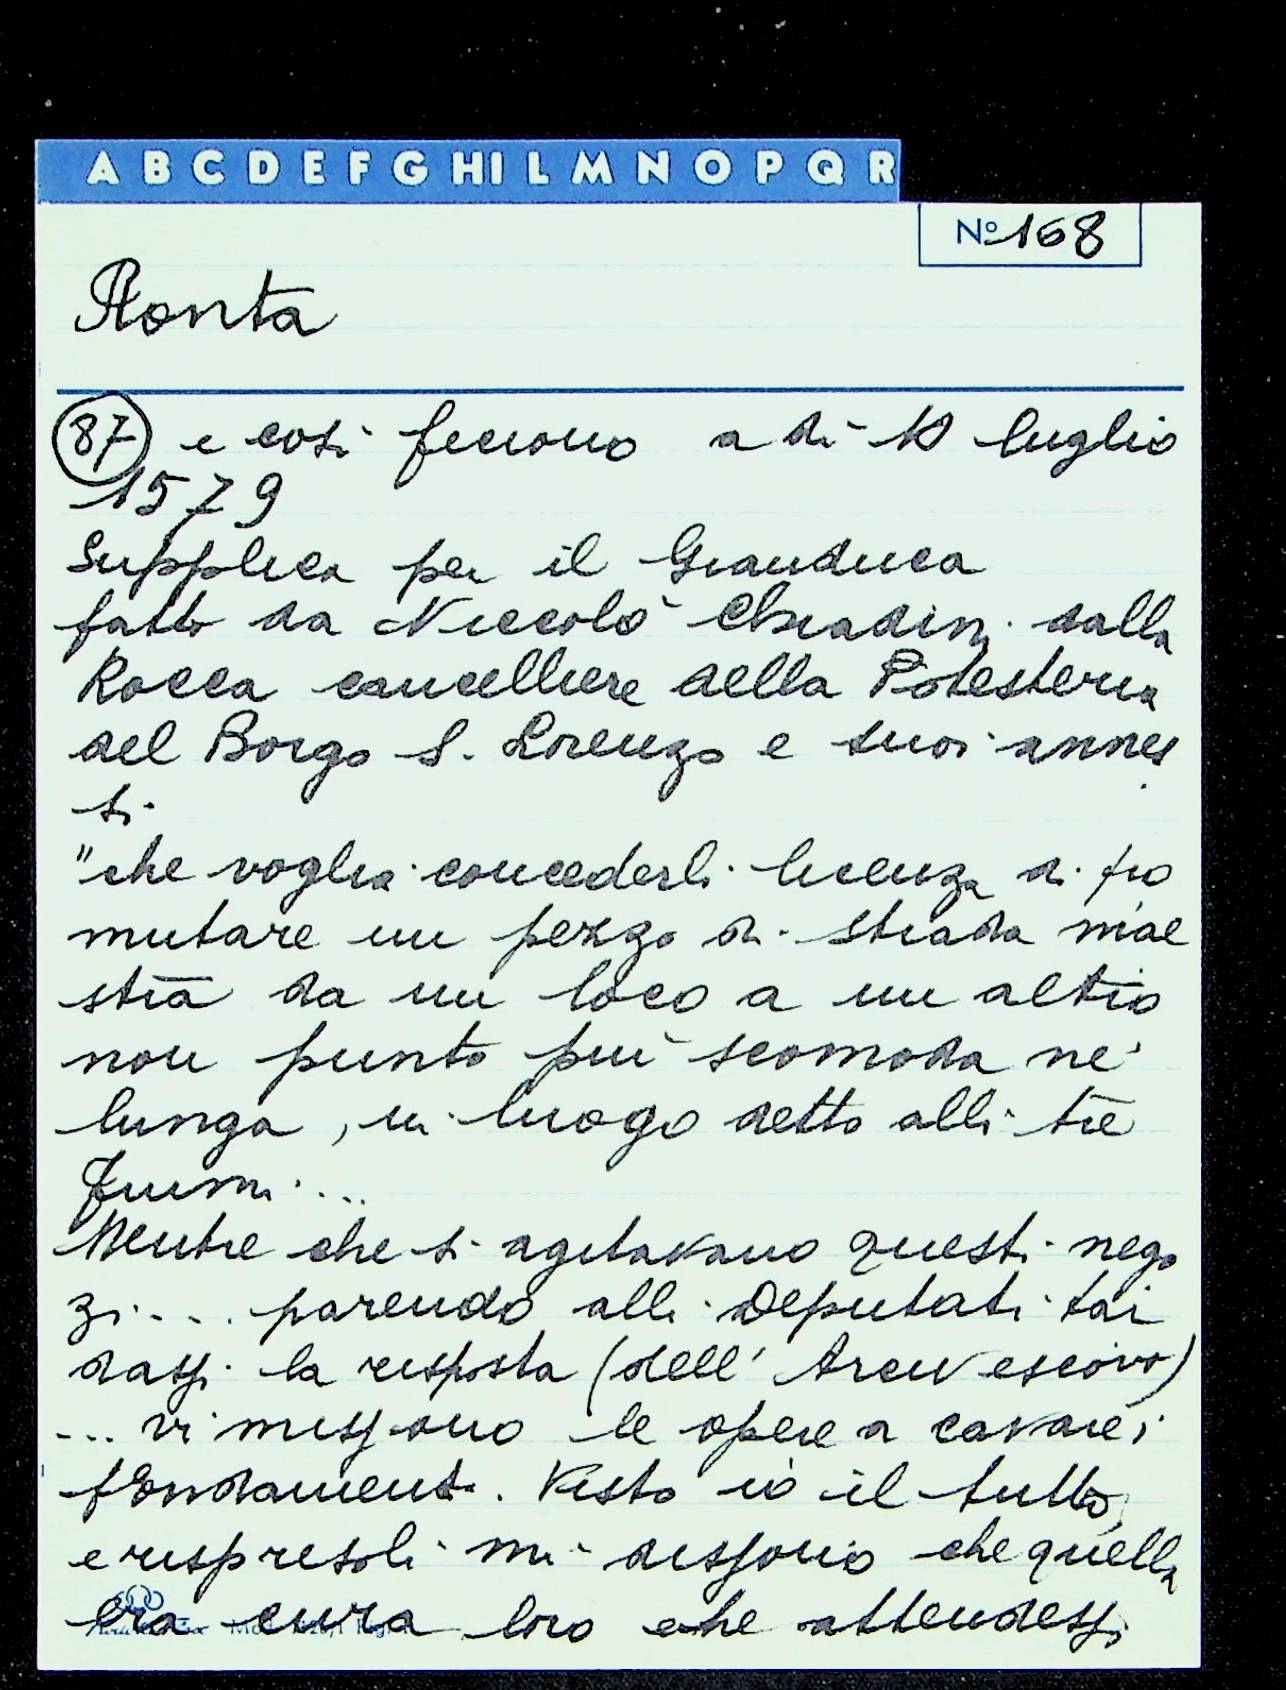 A B C D E F G HI L M N O P Q R
Nº 168
Ronta
87 e così feciono a di 10 luglio
1579
Supplica per il Granduca
fatto da Niccolò dalla
Rocca cancelliere della Potesteria
del Borgo S. Lorenzo e suoi annes
si
"che voglia concederli licenza di pro
mutare un pezzo di strada mae
stra da un loco a un altro
non punto più scomoda nè
lunga, in luogo detto alli tre
fiumi ...
Mentre che si agitavano questi nego
zi .... parendo alli Deputati tar
dassi la risposta (dell' Arcivescovo)
... vi missono le opere a cavare i
fondamenti. Visto io il tutto,
e ripresoli mi dissono che quella
era cura loro che attendessi